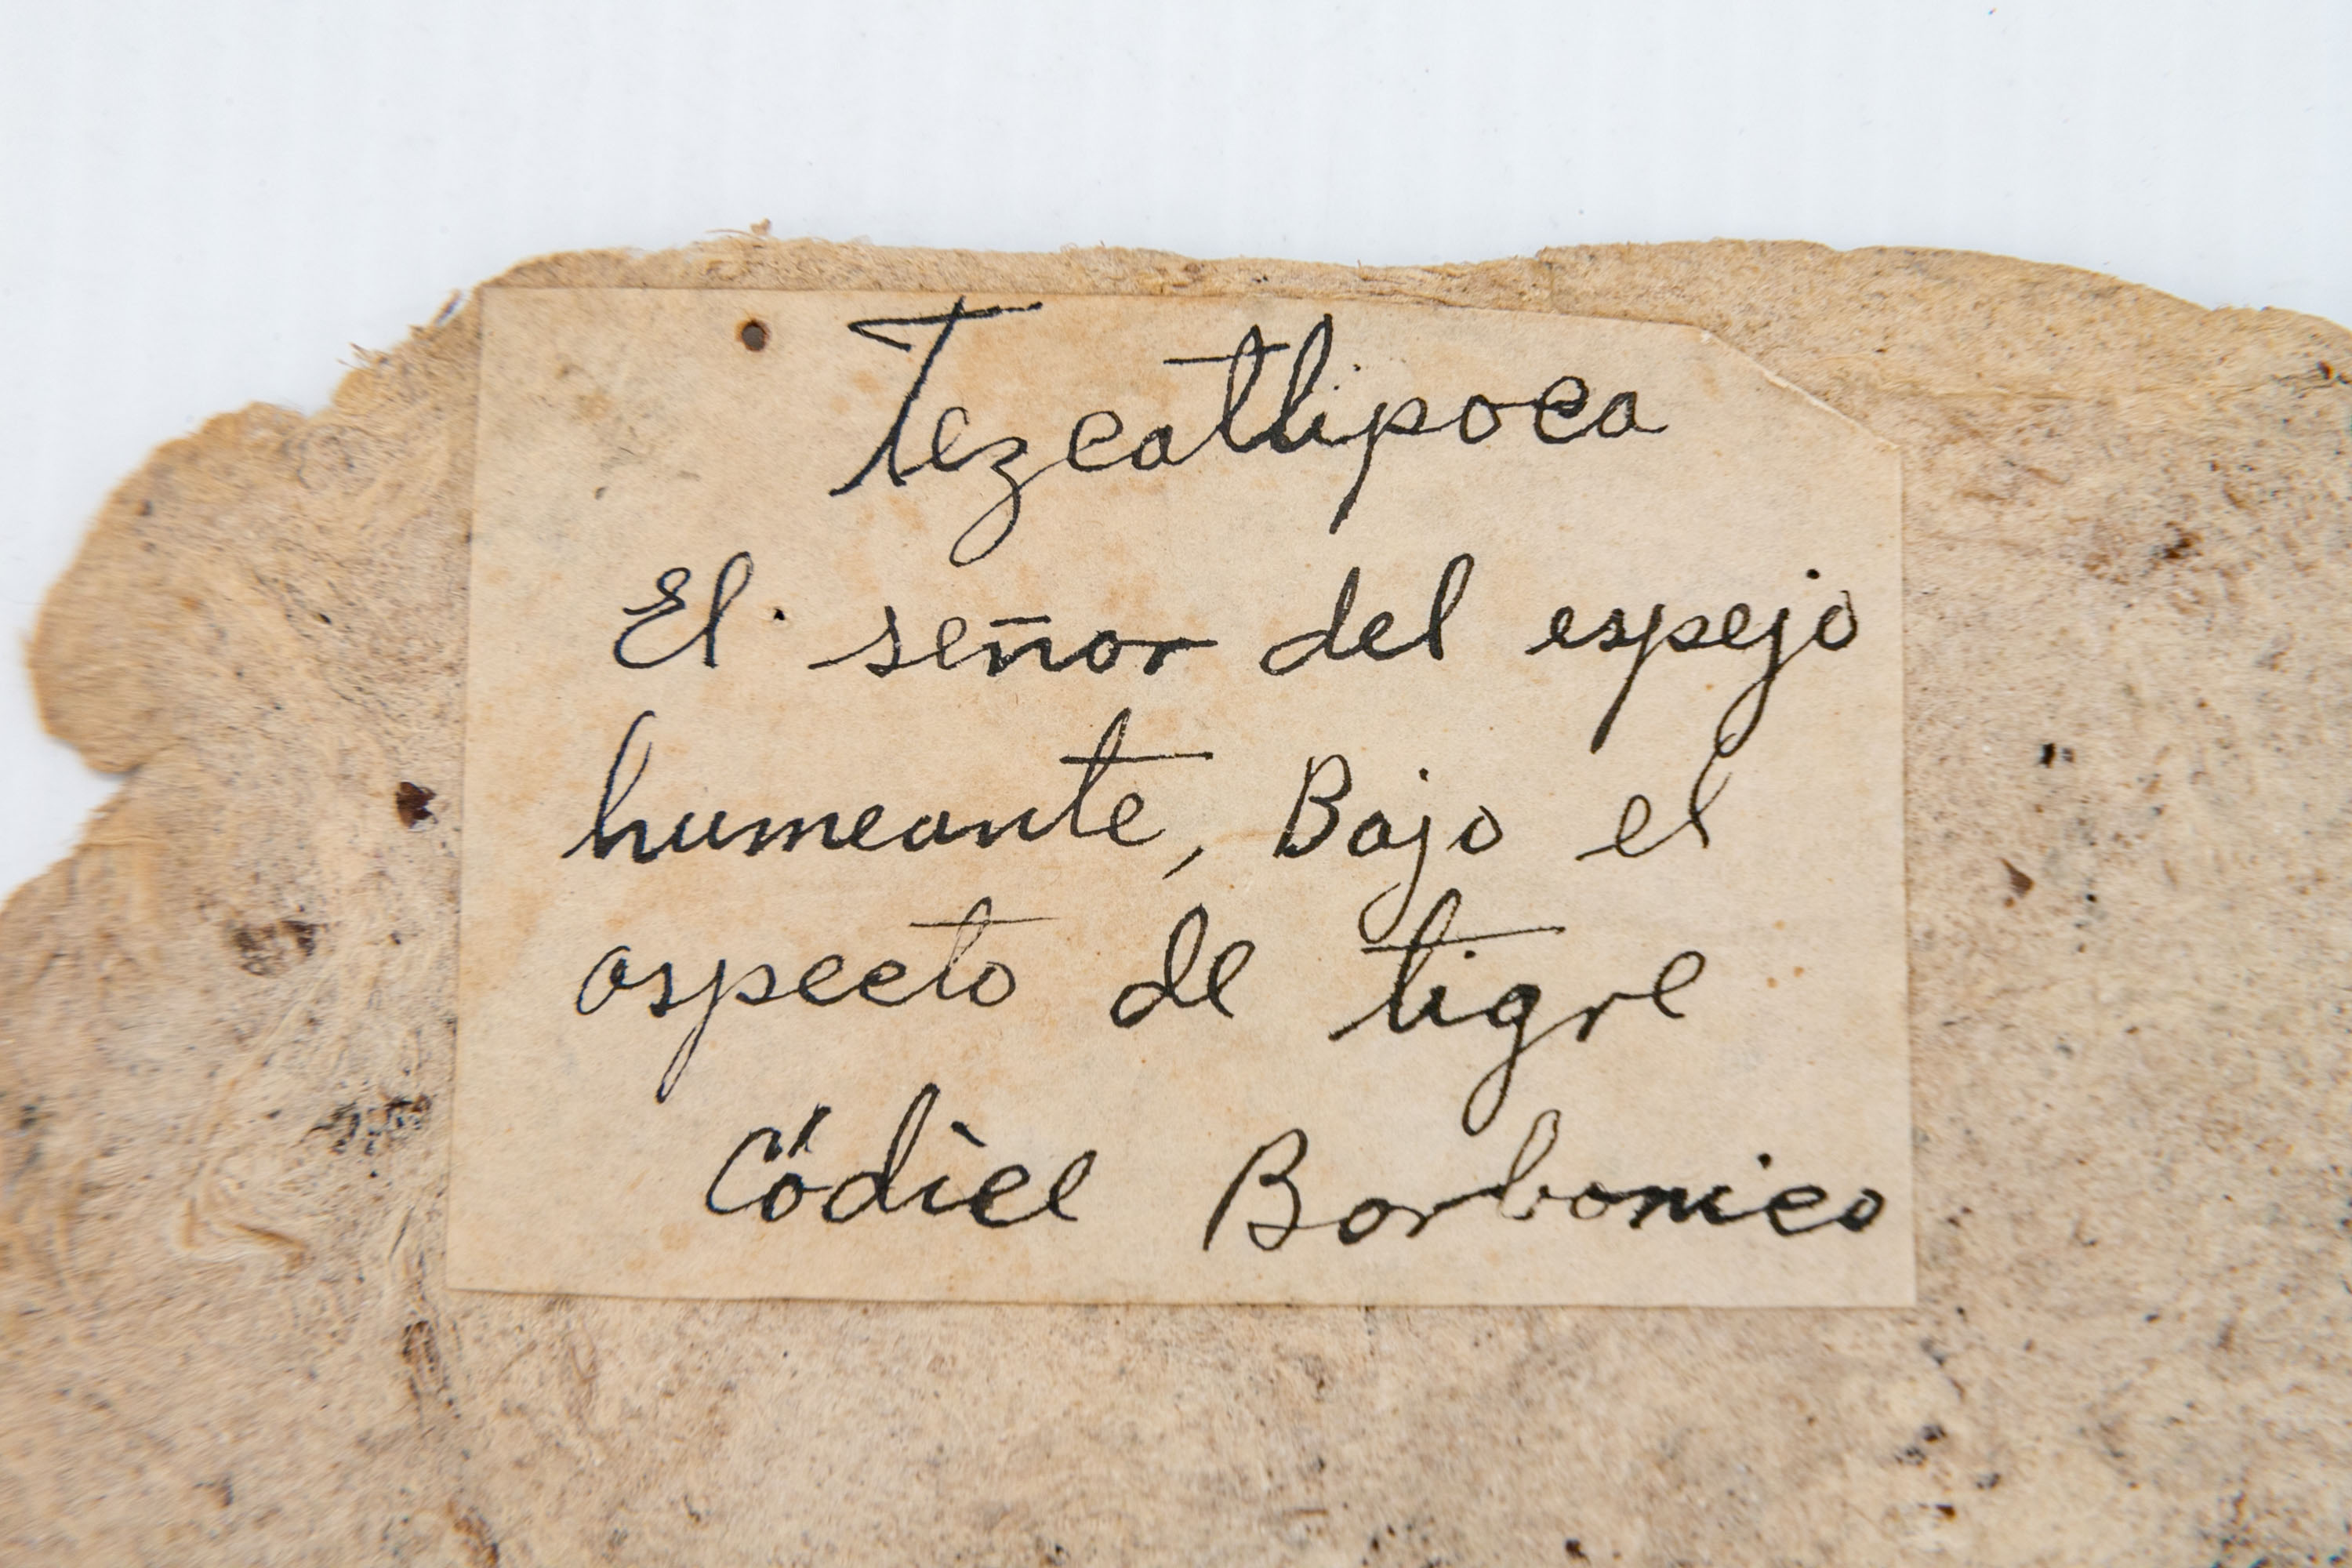 Tezcatlipoca
El señor del espejo
humeante, Bajo el
aspecto de tigre
Códice Borbonico